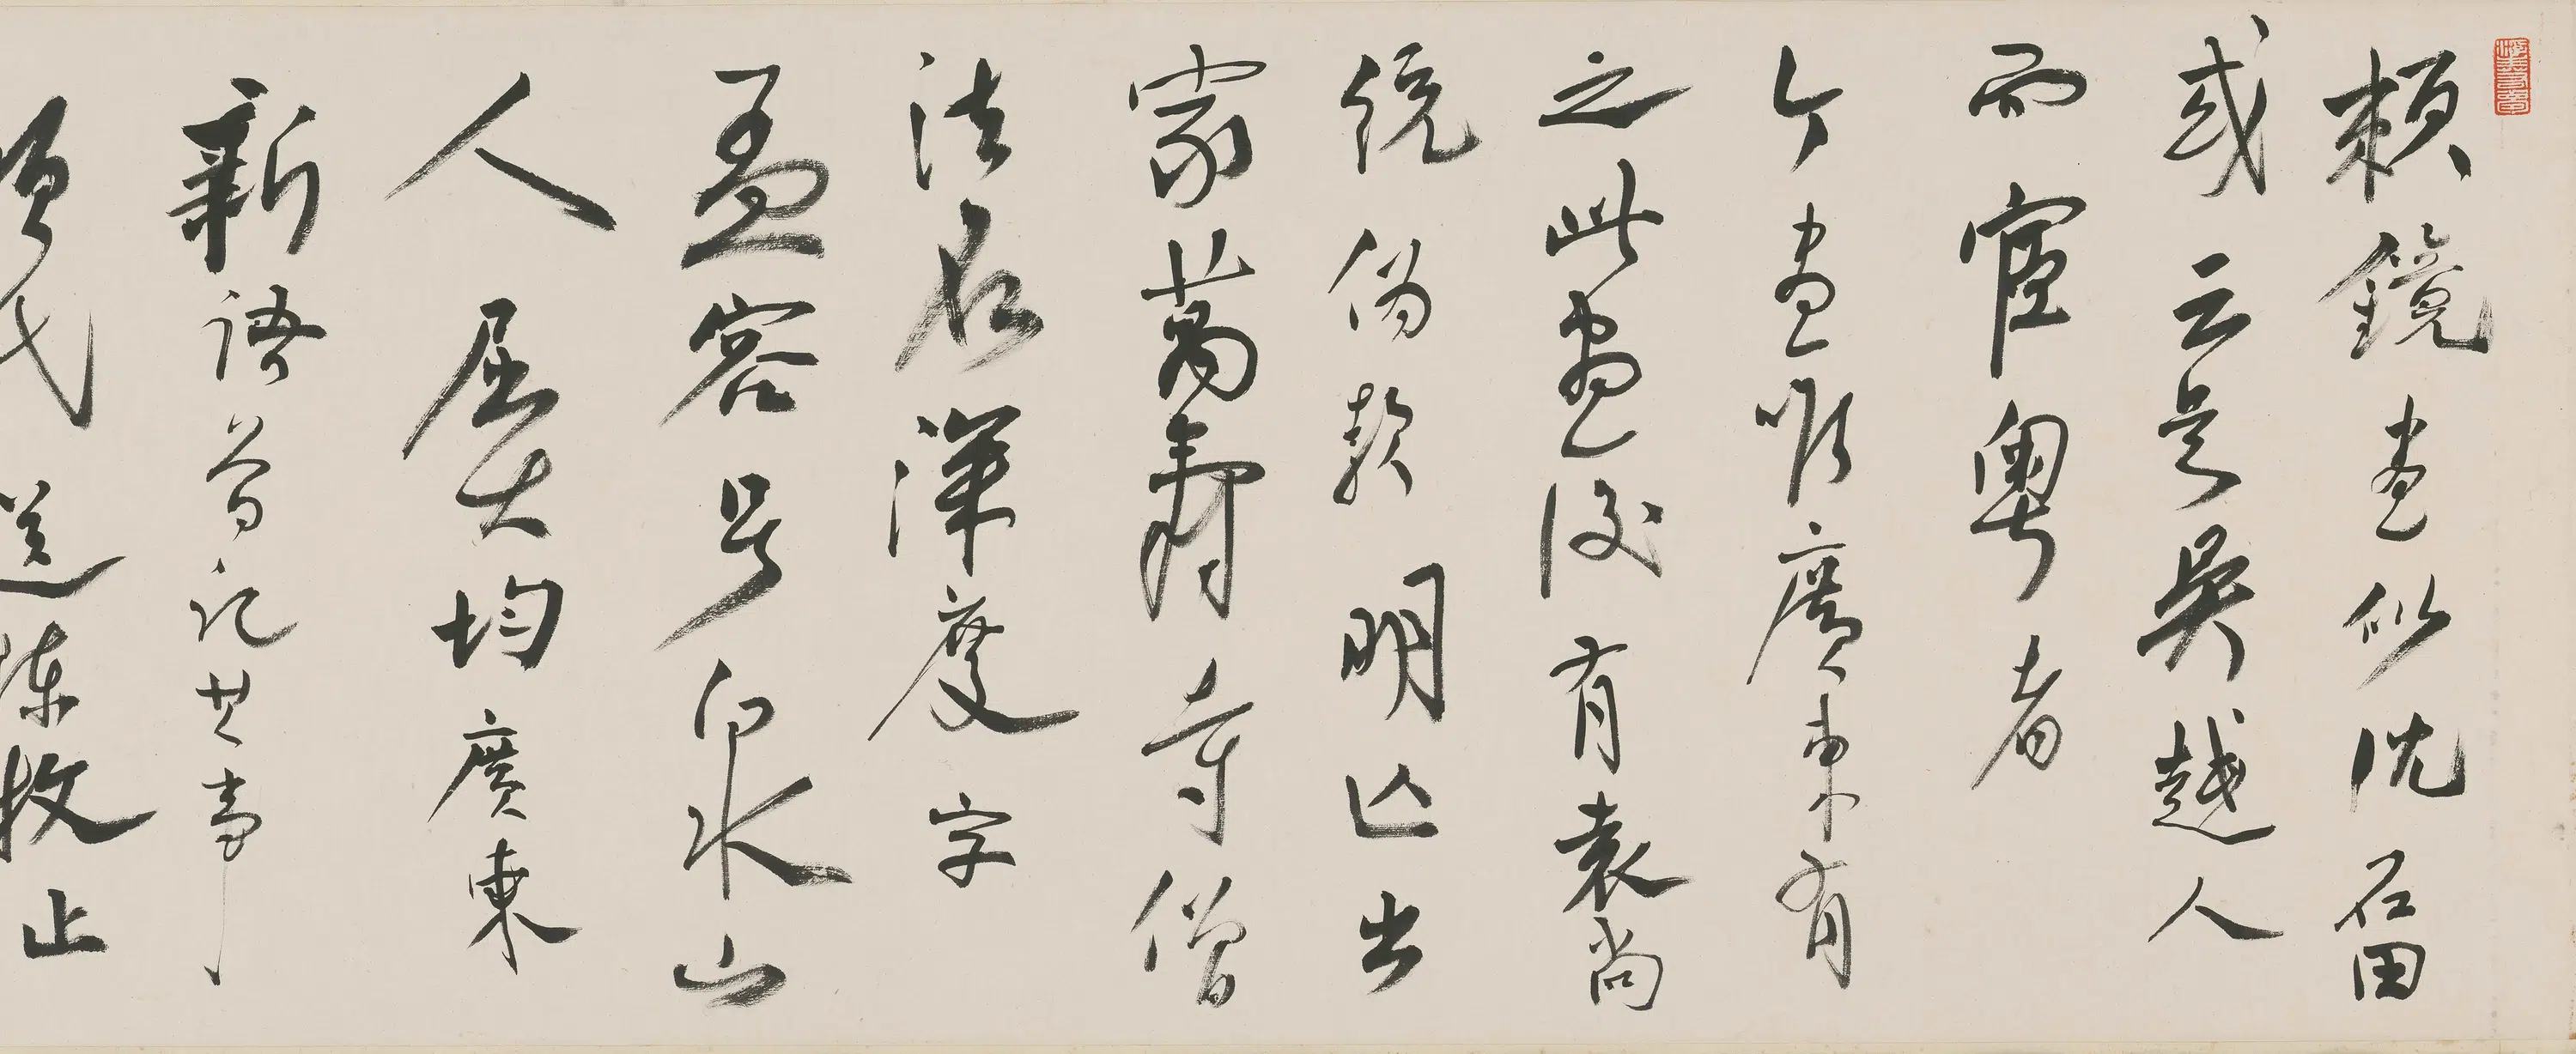 賴鏡畫似沈石田
或云是吳越人
而宦粵者
今畫唯廣東有
之此畫後有袁尚
統偽款明亡出
家萬壽寺僧
法名深度字
孟容号泉山
人屈大均廣東
新語曾記其事
送陳牧止